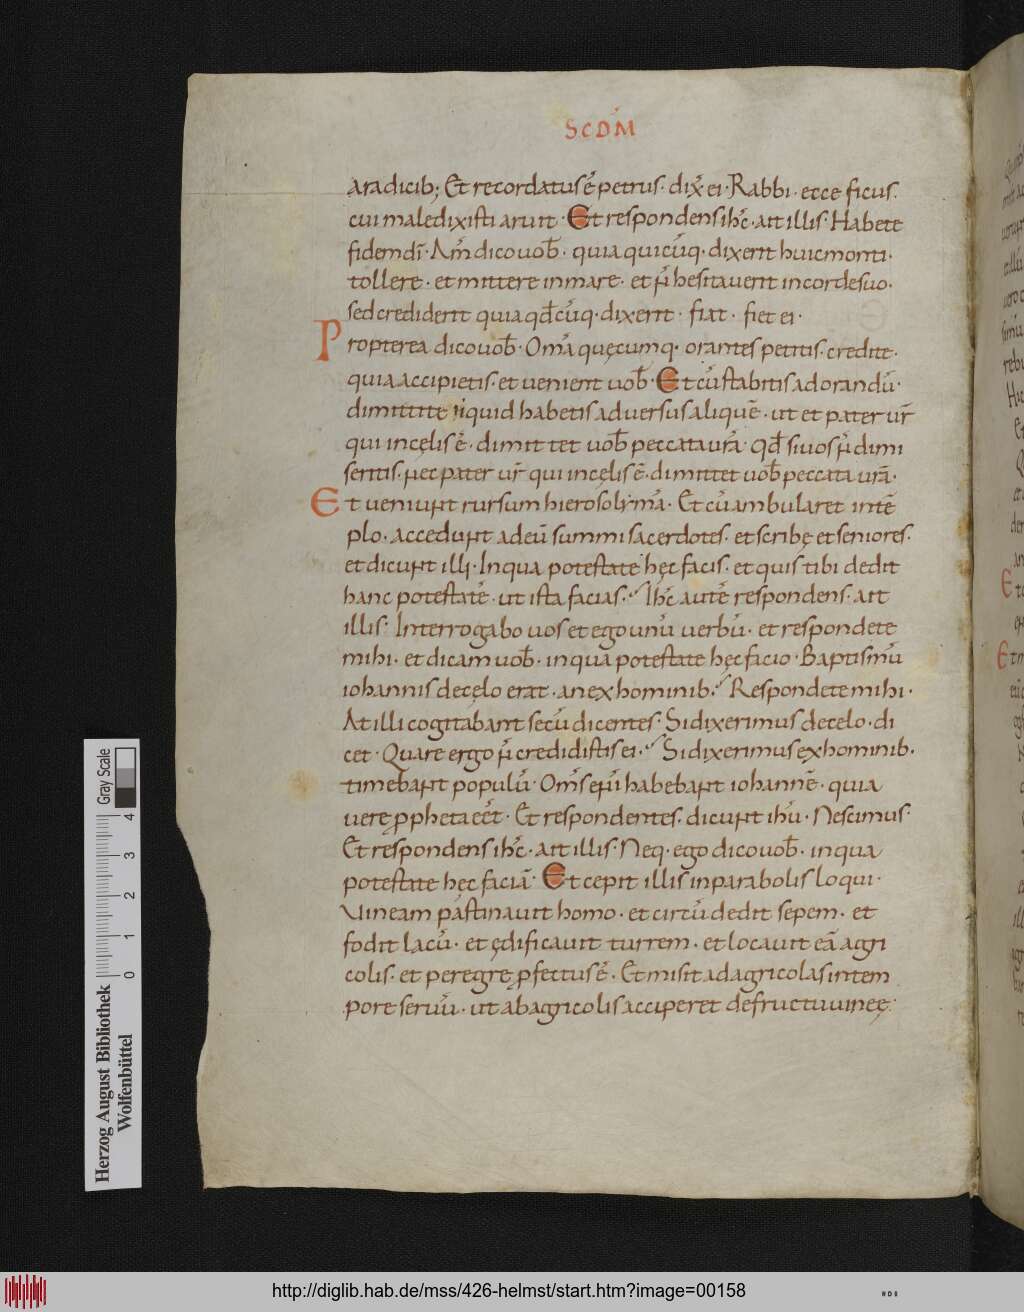 SCDM̄
aradicib; Et recordatus ē petrus. dix̄ ei. Rabbi. ecce ficus.
cui maledixisti aruit. Et respondens ihc̄. ait illis. Habete
fidem dī. Am̄ dico vob̄. quia quicūq. dixerit huic monti.
tollere. et mittere in mare. et n̄ hesitaverit in corde suo.
sed crediderit quia qd̄cūq. dixerit. fiat. fiet ei.
Propterea dico vob̄. Om̄a quęcumq. orantes petitis. credite.
quia accipietis. et venient vob̄. Et cū stabitis ad orandū.
dimittite si quid habetis adversus aliquē. ut et pater vr̄
qui in cęlis ē. dimittet vob̄ peccata vr̄a. Qd̄ si vos n̄ dimi
seritis. nec pater vr̄ qui in cęlis ē. dimittet vob̄ peccata vr̄a.
Et veniunt rursum hierosolym̄a. Et cū ambularet in tē
plo. accedunt ad eū summi sacerdotes. et scribę et seniores.
et dicunt illi. In qua potestate hęc facis. et quis tibi dedit
hanc potestatē. ut ista facias. Ihc̄ autē respondens. ait
illis. Interrogabo vos et ego unū verbū. et respondete
mihi. et dicam vob̄. in qua potestate hęc facio. Baptismū
iohannis de cęlo erat. an ex hominib. Respondete mihi.
At illi cogitabant secū dicentes. Si dixerimus de celo. di
cet. Quare ergo n̄ credidistis ei. Si dixerimus ex hominib.
timebant populū. Om̄s enī habebant iohannē. quia
vere ꝓpheta eēt. Et respondentes. dicunt ihū. Nescimus.
Et respondens ihc̄. ait illis. Neq. ego dico vob̄. in qua
potestate hęc faciā. Et cepit illis in parabolis loqui.
Vineam pastinavit homo. et circūdedit sepem. et
fodit lacū. et ędificavit turrem. et locavit eā agri
colis. et peregre ꝓfectus ē. Et misit ad agricolas in tem
pore servū. ut ab agricolis acciperet de fructu vineę.
Gray Scale
0 1 2 3 4
Herzog August Bibliothek
Wolfenbüttel
http://diglib.hab.de/mss/426-helmst/start.htm?image=00158